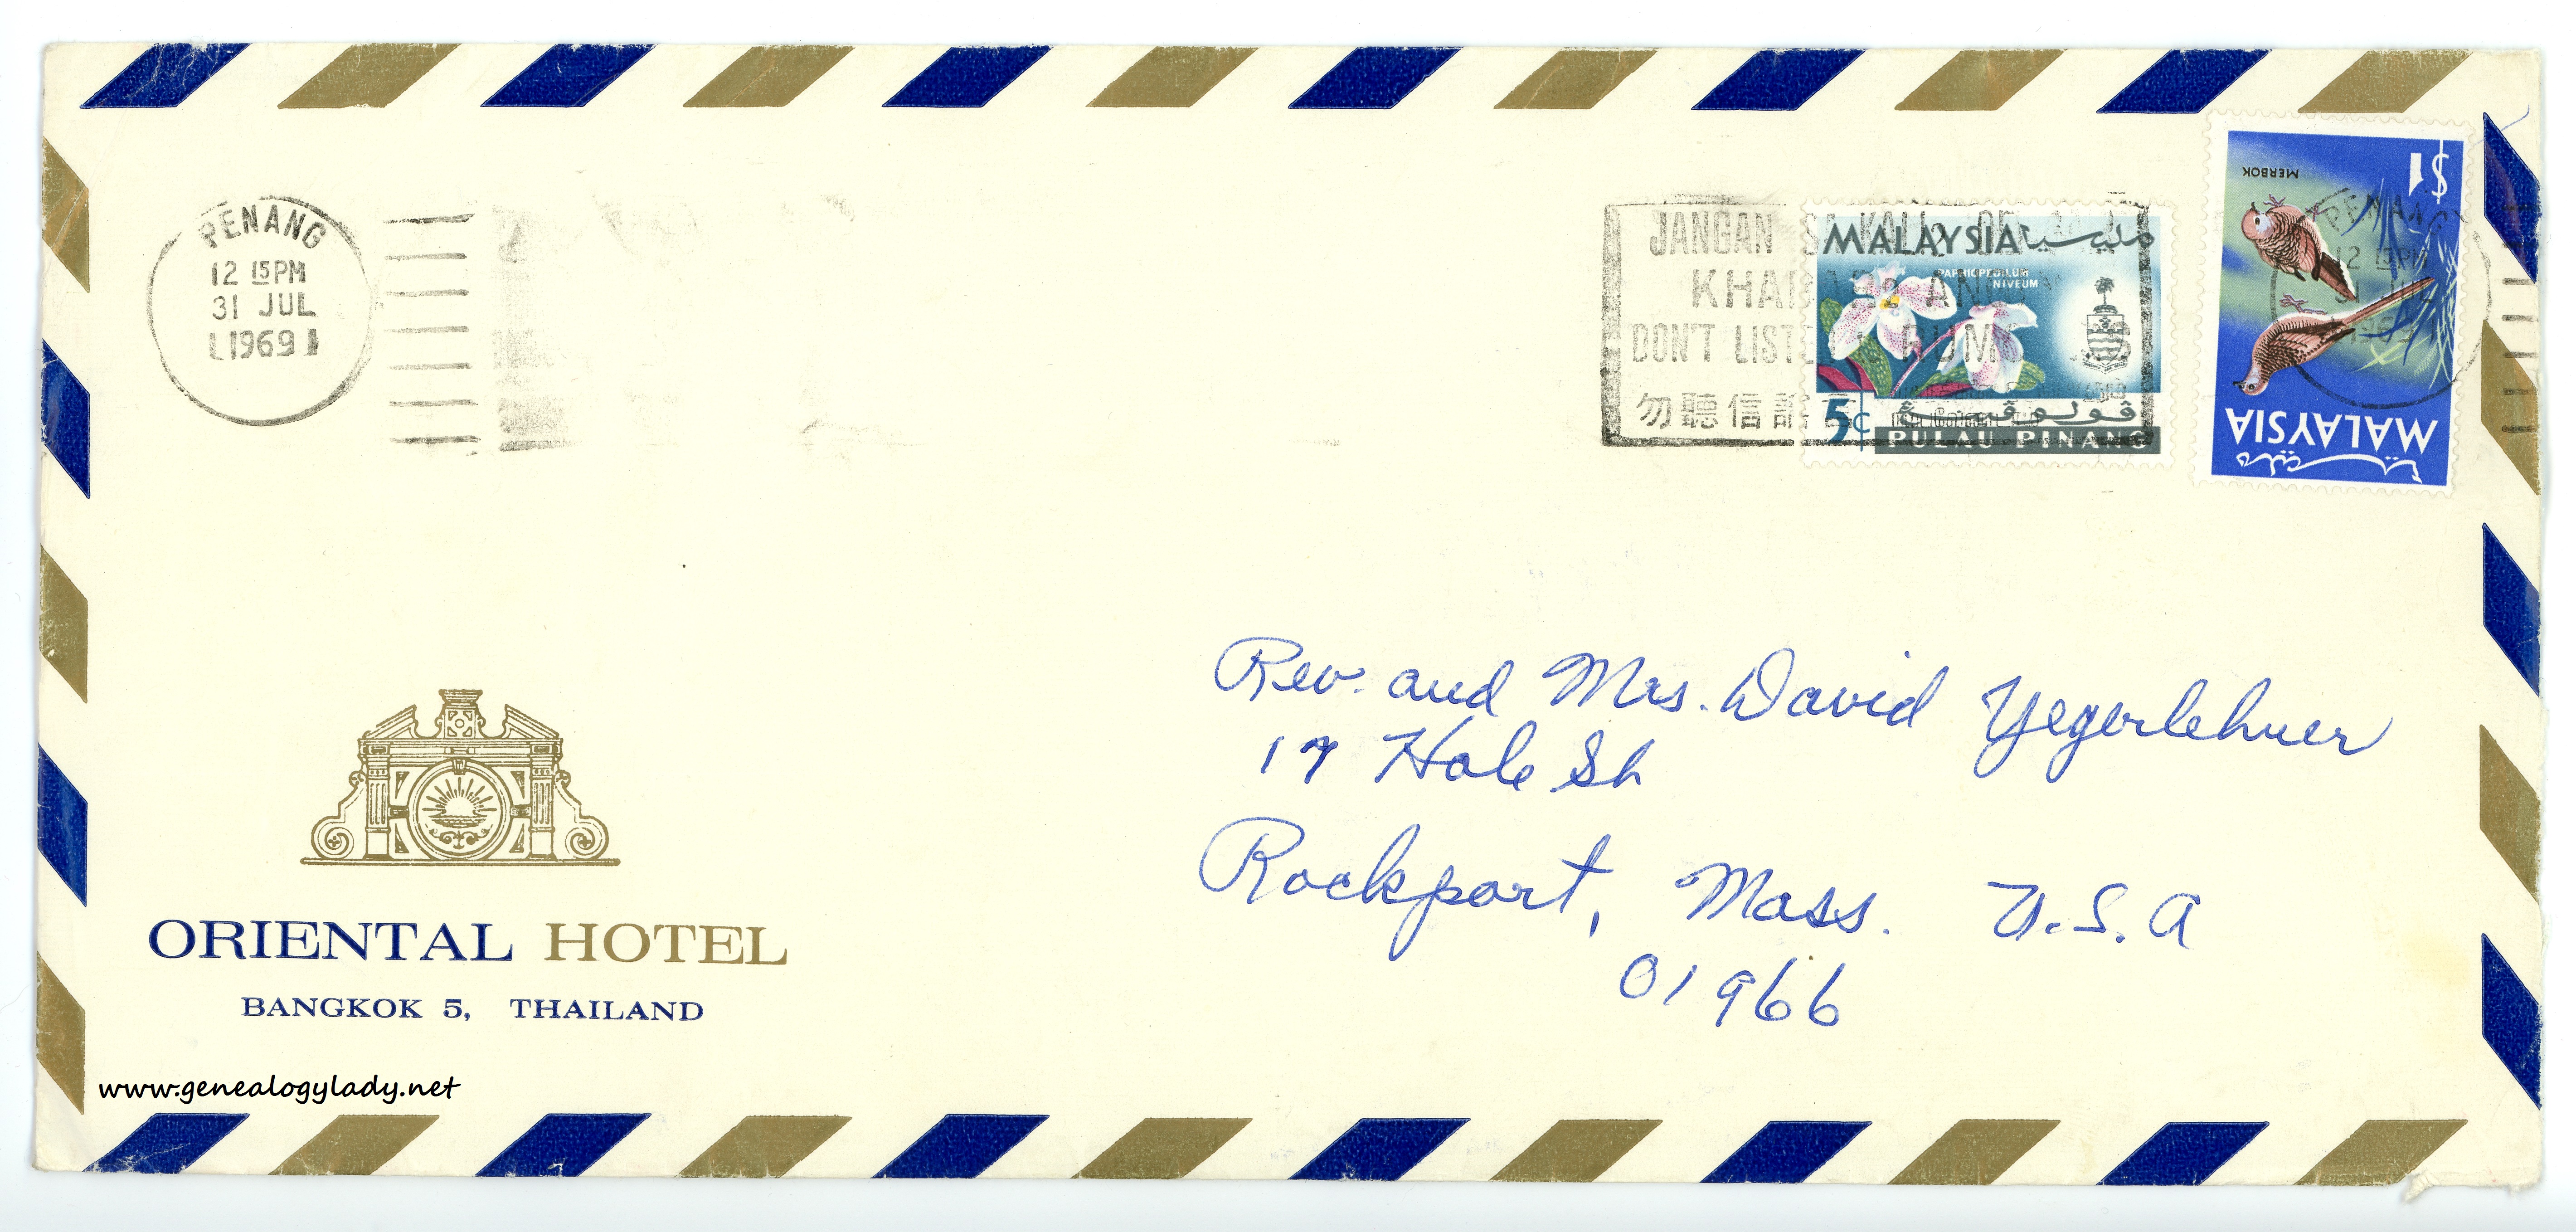 PENANG
12 15PM
31 JUL
1969
JANGAN
DON'T LISTE
勿聽信謠
MALAYSIA مليسيا
PAPHIOPEDILUM
NIVEUM
5¢
ڤولاو ڤينڠ
PULAU PINANG
$1
MERBOK
MALAYSIA
مليسيا
PENANG
12 15PM
Rev. and Mrs. David Yegerlehner
17 Hale St
Rockport, Mass. U.S.A
01966
ORIENTAL HOTEL
BANGKOK 5, THAILAND
www.genealogylady.net